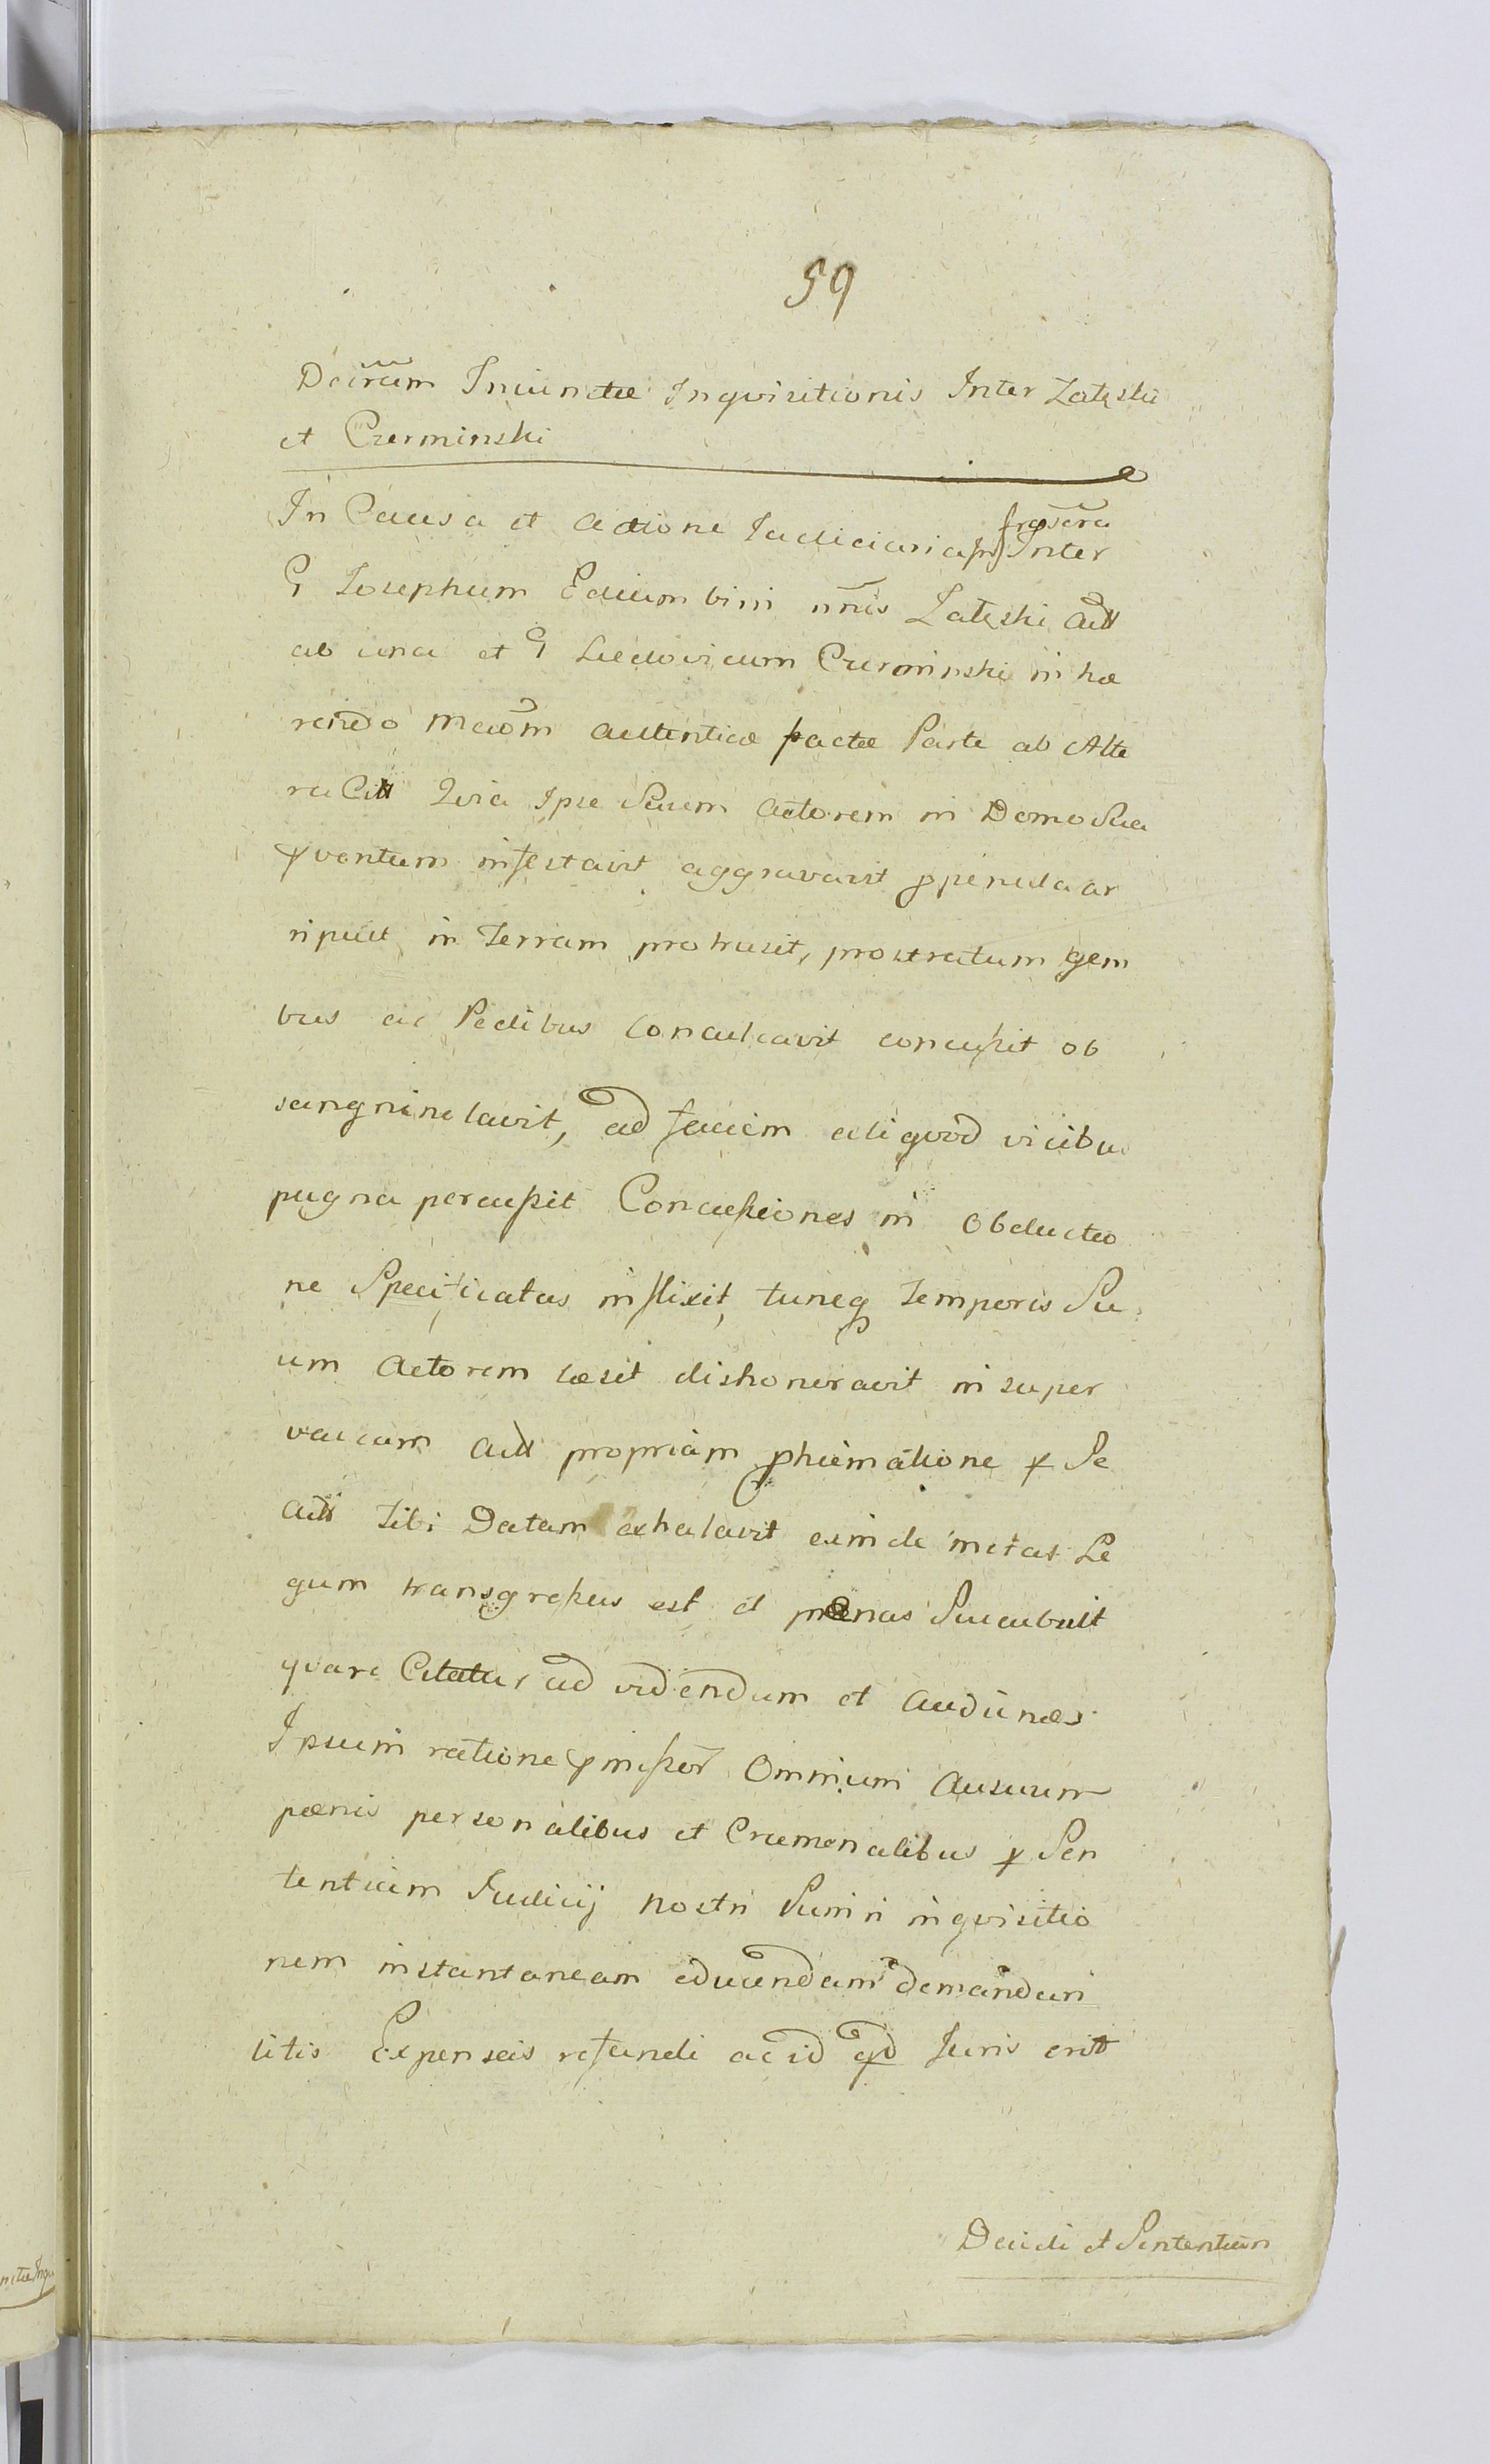 59
Decrum Iniunctæ Inqvisitionis Inter Załęski
et Czerminski
In Causa et Actione Iudiciaria infrascra Inter
G Iosephum bini nnis Załęski Act
ab una et G Ludovicum Czerminski in hæ
rendo autenticæ factæ Parte ab Alte
ra Citt Qvia Ipse Suum Actorem in Domo Sua
infestavit aggravavit ar
ripuit in Terram protrusit, prostratum gem
bus ac Pedibus conculcavit concußit ob
sangvinolavit, ad faciem aliqvod vicibus
pugna percußit Concußiones in Obductio
ne Specificatas inflixit, tuncq temporis Su
um Actorem læsit dishonoravit insuper
Act propriam
Act Sibi Datam exhalavit exinde metas Le
gum transgreßus est et pænas Succubuit
qvare Citatur ad videndum et
Ipsum ratione Omnium Ausuum
pænis personalibus et Criminalibus Sen
tentiam Iudicij nostri Puniri inqvisitio
nem instantaneam educendam demandari
litis Expensas refundi ac id qd Iuris erit
Decidi et Sententiam